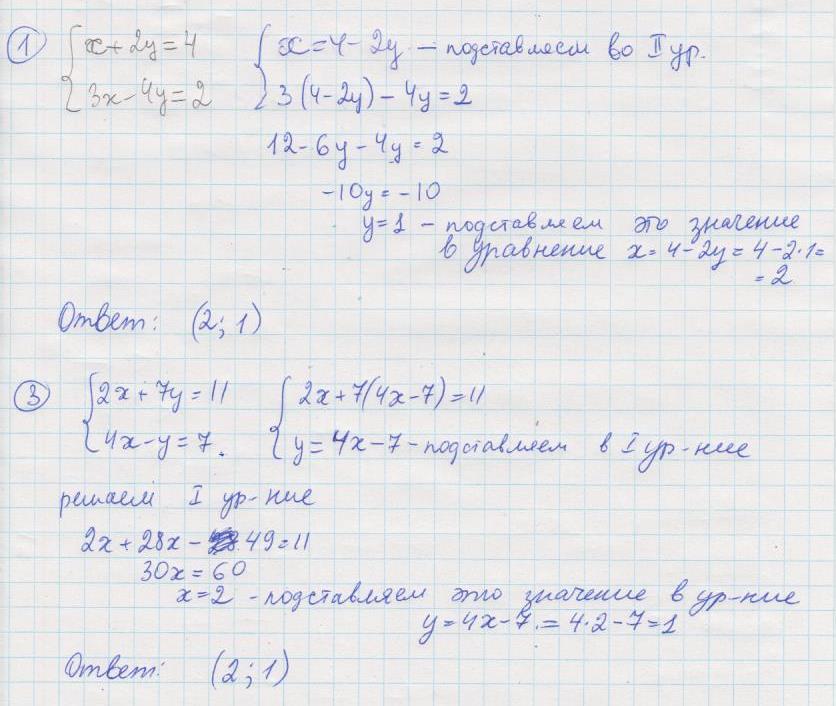 1 { x + 2y = 4 { x = 4 - 2y - подставляем во II ур.
3x - 4y = 2 3(4 - 2y) - 4y = 2
12 - 6y - 4y = 2
-10y = -10
y = 1 - подставляем это значение
в уравнение x = 4 - 2y = 4 - 2·1 =
= 2
Ответ: (2; 1)
3 { 2x + 7y = 11 { 2x + 7(4x - 7) = 11
4x - y = 7. y = 4x - 7 - подставляем в I ур-ние
решаем I ур-ние
2x + 28x - 49 = 11
30x = 60
x = 2 - подставляем это значение в ур-ние
y = 4x - 7 = 4·2 - 7 = 1
Ответ: (2; 1)